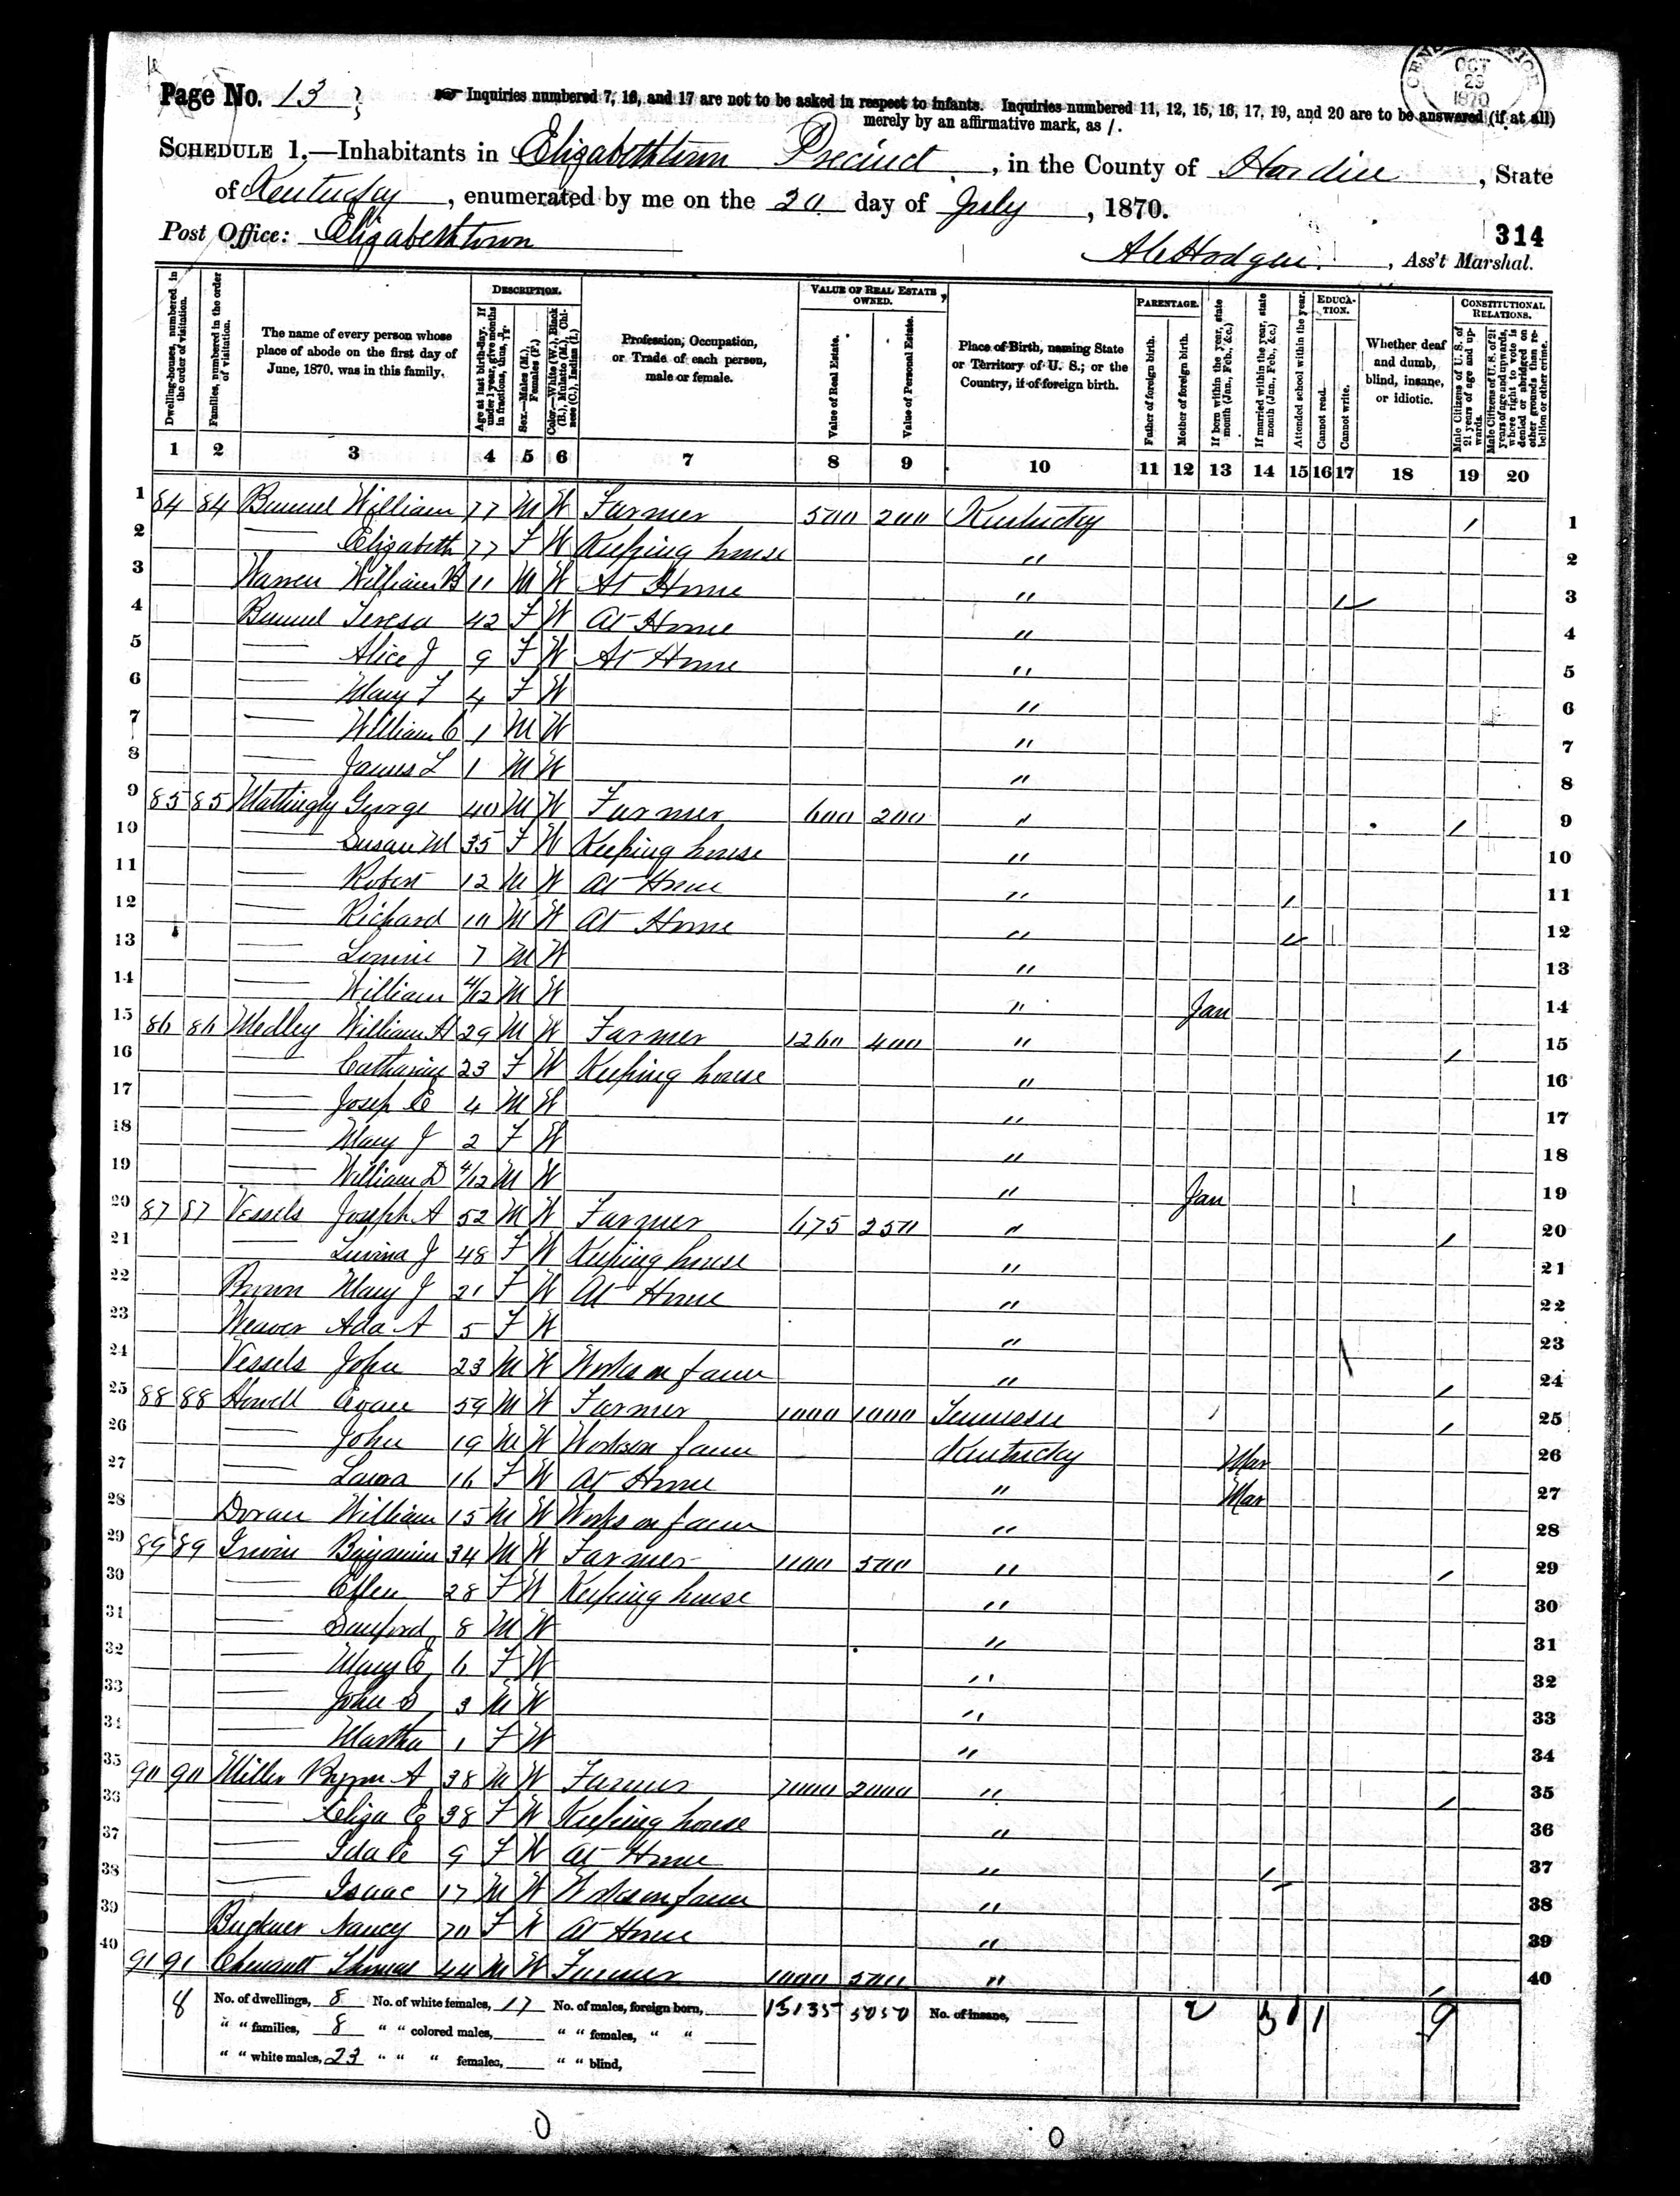 Page No. 13
Inquiries numbered 7, 16, and 17 are not to be asked in respect to infants. Inquiries numbered 11, 12, 15, 16, 17, 19, and 20 are to be answered (if at all)
merely by an affirmative mark, as /.
OCT
29
1870
SCHEDULE 1.—Inhabitants in Elizabethtown Precinct, in the County of Hardin, State
of Kentucky, enumerated by me on the 20 day of July, 1870.
Post Office: Elizabethtown
314
Ass't Marshal.
Dwelling-houses, numbered in the order of visitation.
Families, numbered in the order of visitation.
The name of every person whose place of abode on the first day of June, 1870, was in this family.
DESCRIPTION.
Age at last birth-day. If under 1 year, give months in fractions, thus,
Sex.—Males (M.), Females (F.)
Color.—White (W.), Black (B.), Mulatto (M.), Chinese (C.), Indian (I.)
Profession, Occupation, or Trade of each person, male or female.
VALUE OF REAL ESTATE OWNED.
Value of Real Estate.
Value of Personal Estate.
Place of Birth, naming State or Territory of U. S.; or the Country, if of foreign birth.
PARENTAGE.
Father of foreign birth.
Mother of foreign birth.
If born within the year, state month (Jan., Feb., &c.)
If married within the year, state month (Jan., Feb., &c.)
Attended school within the year.
EDUCATION.
Cannot read.
Cannot write.
Whether deaf and dumb, blind, insane, or idiotic.
CONSTITUTIONAL RELATIONS.
Male Citizens of U. S. of 21 years of age and upwards.
Male Citizens of U. S. of 21 years of age and upwards, where right to vote is denied or abridged on other grounds than rebellion or other crime.
1 2 3 4 5 6 7 8 9 10 11 12 13 14 15 16 17 18 19 20
1 84 84 William 77 M W Farmer 500 200 Kentucky / 1
2 — Elizabeth 77 F W Keeping house " 2
3 Warren William B 11 M W At Home " / 3
4 Teresa 42 F W At Home " 4
5 — Alice J 9 F W At Home " 5
6 — Mary F 4 F W " 6
7 — William C 1 M W " 7
8 — James L 1 M W " 8
9 85 85 Mattingly George 40 M W Farmer 600 200 " / 9
10 — Susan M 35 F W Keeping house " 10
11 — Robert 12 M W At Home " / 11
12 — Richard 10 M W At Home " / 12
13 — 7 M W " 13
14 — William 4/12 M W " Jan 14
15 86 86 Medley William H 29 M W Farmer 1260 400 " / 15
16 — Catharine 23 F W Keeping house " 16
17 — Josep E 4 M W " 17
18 — Mary J 2 F W " 18
19 — William D 4/12 M W " Jan 19
20 87 87 Vessels Joseph A 52 M W Farmer 675 250 " / 20
21 — Luvina J 48 F W Keeping house " 21
22 Mary J 21 F W At Home " 22
23 Weaver Ada A 5 F W " 23
24 Vessels John 23 M W Works on farm " / 24
25 88 88 Howell Evan 59 M W Farmer 1000 1000 Tennessee / 25
26 — John 19 M W Works on farm Kentucky Mar 26
27 — Laura 16 F W At Home " Mar 27
28 Doran William 15 M W Works on farm " 28
29 89 89 Irwin Benjamin 34 M W Farmer 500 " / 29
30 — Ellen 28 F W Keeping house " 30
31 — Sanford 8 M W " 31
32 — Mary E 6 F W " 32
33 — John S 3 M W " 33
34 — Martha 1 F W " 34
35 90 90 Miller A 38 M W Farmer 7000 2000 " / 35
36 — Eliza E 38 F W Keeping house " 36
37 — Ida E 9 F W At Home " / 37
38 — Isaac 17 M W Works on farm " / 38
39 Buckner Nancy 70 F W At Home " 39
40 91 91 Chenault Thomas 44 M W Farmer 1000 500 " / 40
8 No. of dwellings, 8 No. of white females, 17 No. of males, foreign born, 13135 5050 No. of insane, 2 9
" " families, 8 " " colored males, " " females, " "
" " white males, 23 " " " females, " " blind,